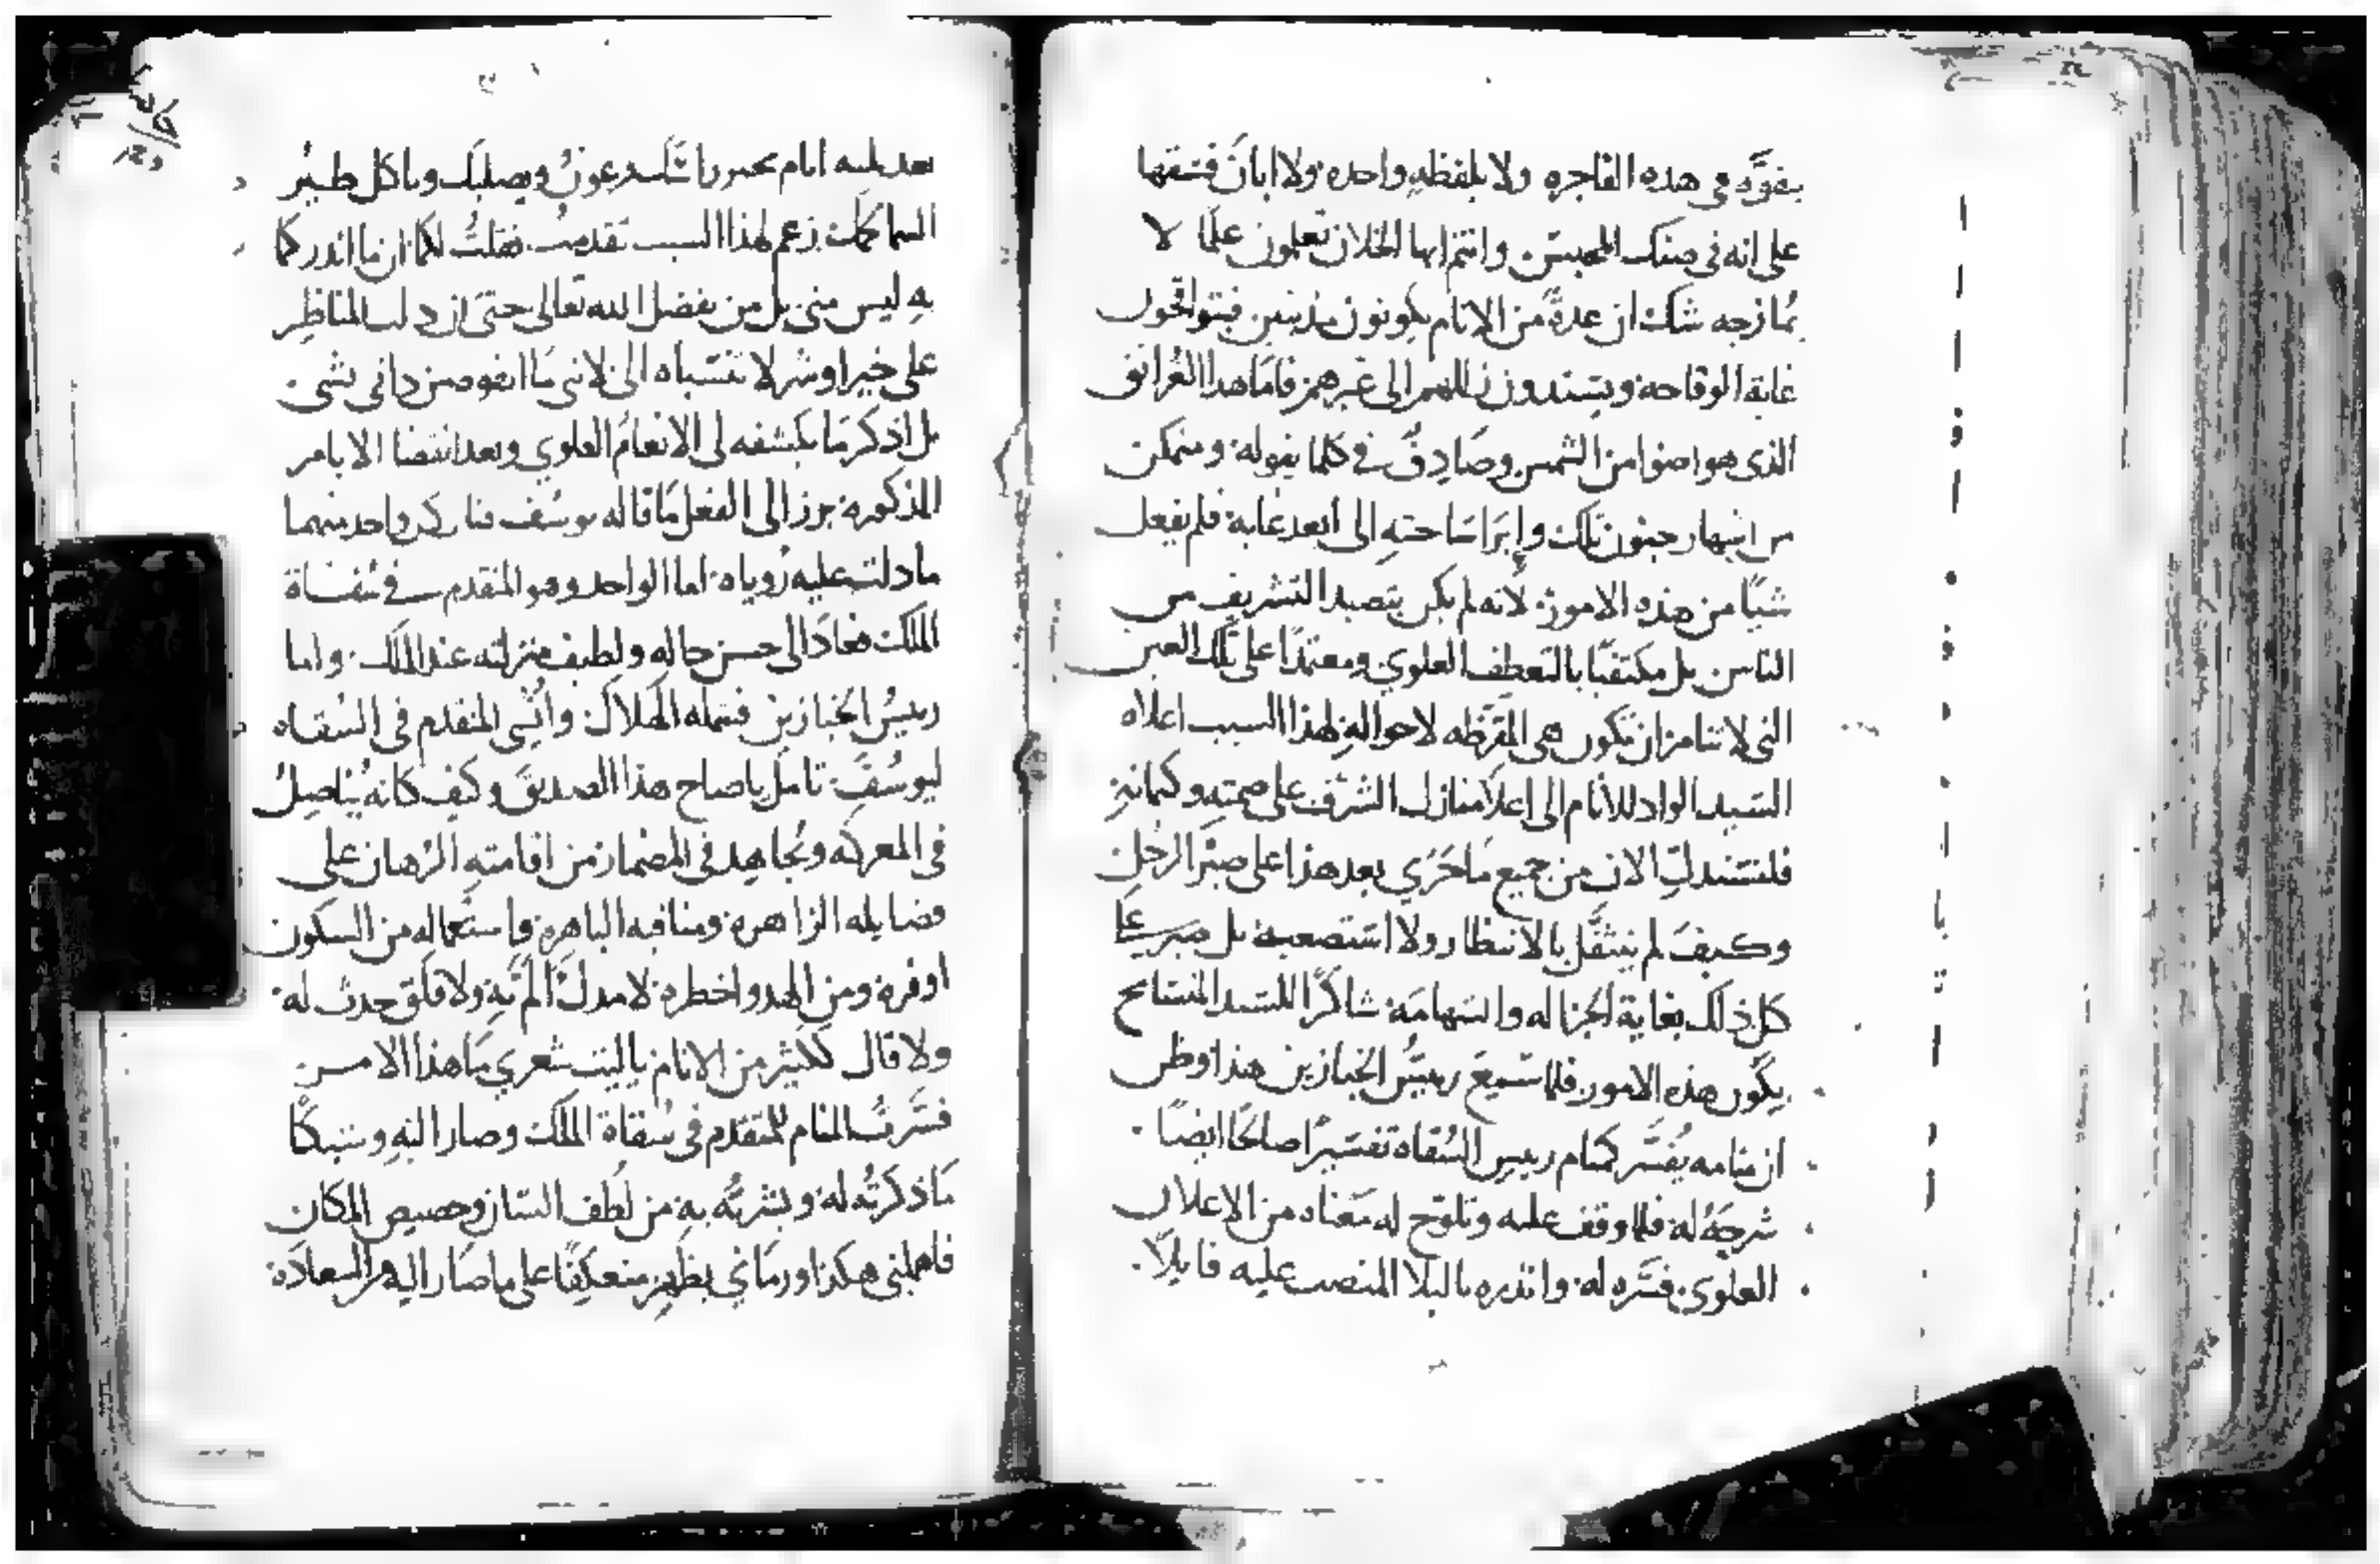 يفوّه في هذه الفاجره ولا بلفظةٍ واحده ولا ابان فسقها
على انه في ضنك المحبس وانتم ايها الخلان تعلمون علمًا لا
يمازجه شك ان عدةً من الانام يكونون مذنبين فيتواقحون
غاية الوقاحه ويسندون زللهم الى غيرهم فاما هذا الغرانق
الذى هو اضوا من الشمس وصادقٌ في كلما يقوله ومتمكن
من اشهار جنون تلك وإبرا ساحته الى ابعد غاية فلم يفعل
شيًا من هذه الامور لانه لم يكن يتصيد التشريف من
الناس بل مكتفيًا بالتعطف العلوي ومعتمدًا على تلك العين
التي لا تنام ان تكون هي المقرّظه لاحواله لهذا السبب اعلاه
السيد الواد للانام الى اعلا منازل الشرف على صمته وكمانه
فلنستدل الان من جميع ما جَرَي بعد هذا على صبر الرجل
وكيف لم يتثقّل بالانتظار ولا استصعبه بل صبر على
كل ذلك بغاية الجزاله والشهامَة شاكرًا للسيد المتسامح
بكون هذه الامور فلما سمع رييسُ الخبازين هذا وظن
ان منامه يُفسَّر كمنام رييس السُقاه تفسيرًا صالحًا ايضًا
شرحَهُ له فلما وقف عليه وتلوّح له معناه من الاعلان
العلوي فسّره له وانذره بالبلا المنصب عليه قايلاً
بعد ثلثه ايام فرعونُ ويصلبك وياكل طيرُ
السما لهذا السبب تقدمت فقلتُ لكما ان ما انذركما
به ليس مني بل من تفضل الله تعالى حتى ان دلت المناظر
على خير او شر لا تنسباه الىّ لانني ما اتفوه من ذاتى بشي
بل اذكر ما يكشفه لى الانعام العلوي وبعد انقضا الايام
المذكوره برز الى الفعل ما قاله يوسُف فنال كل واحد منهما
ما دلت عليه رُوياه اما الواحد وهو المتقدم في سُقاة
الملك فعادَ الى حسن حاله ولطيف منزلته عند الملك واما
رييسُ الخبازين فشمله الهلاك وانُسِي المتقدم في السُقاه
ليوسُفَ تامل يا صاح هذا الصديق وكيف كانه يُناصل
في المعركه ويُجاهد في المضمار من اقامته الرهان على
فضايله الزاهره ومناقبه الباهره واستعماله من السكون
اوفره ومن الهدو اخطره لا مدلٌّ المّ به ولا قلَق حدث له
ولا قال ككثير من الانام يا ليت شعري ما هذا الامر
فسّرتُ المنام للمتقدم في سُقاة الملك وصار اليه وشيكًا
ما ذكرتُه له وبشرتُه به من لُطف الشان وحصيص المكان
فاهملني هكذا ورماني بظهرٍ منعكفًا على ما صَار اليه من السعادَة